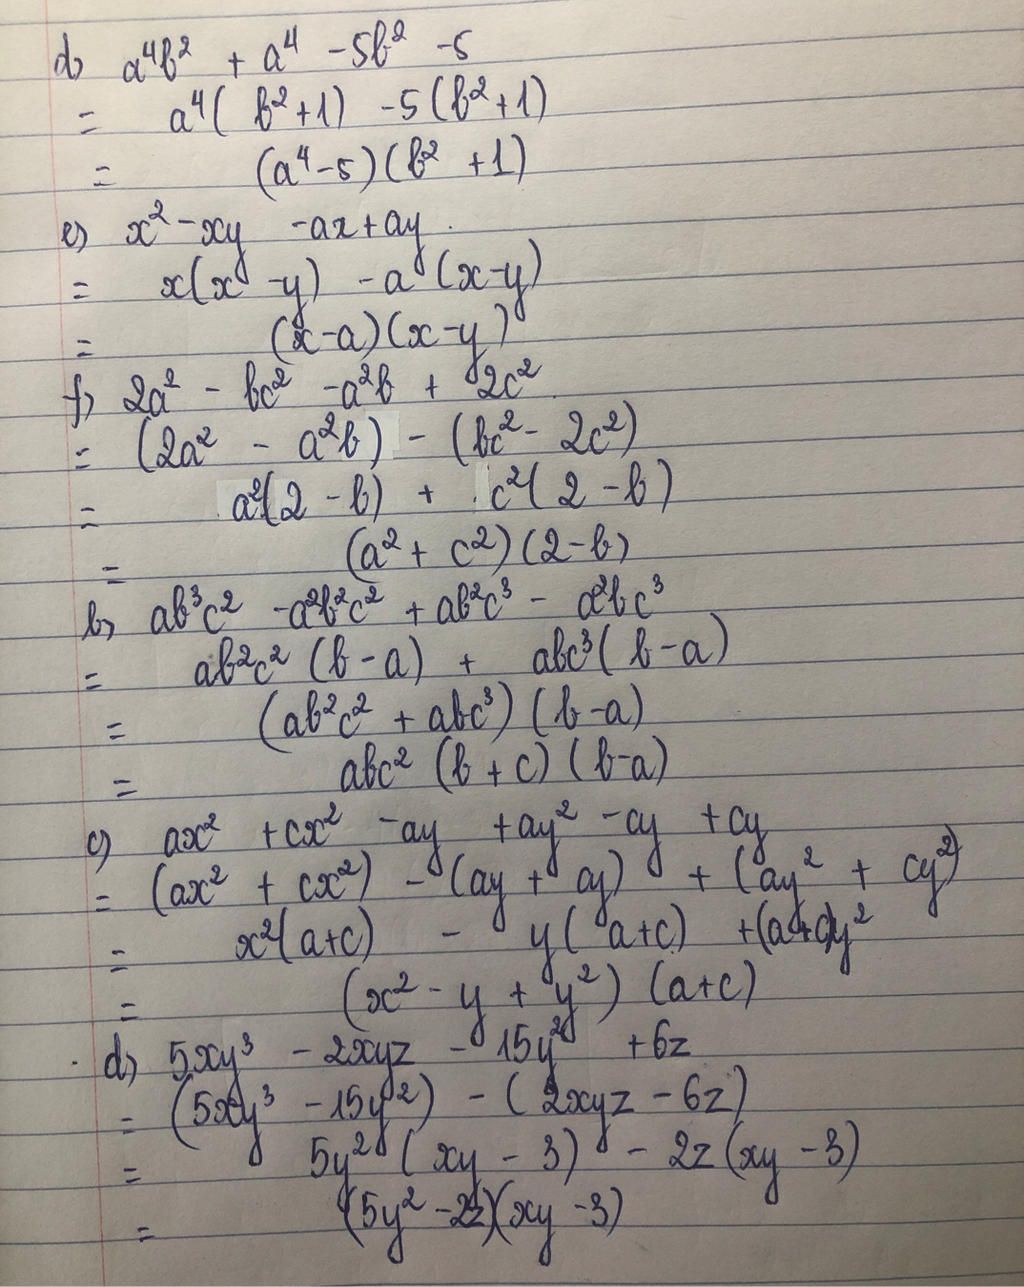 d) a⁴b² + a⁴ - 5b² - 5
= a⁴( b²+1) - 5(b²+1)
= (a⁴-5)(b² +1)
e) x² - xy - ax + ay.
= x(x - y) - a (x-y)
= (x-a)(x-y)
f) 2a² - bc² - a²b + 2c²
= (2a² - a²b) - (bc² - 2c²)
= a²(2 - b) + c²(2 - b)
= (a² + c²)(2-b)
b) ab³c² - a²b²c² + ab²c³ - a²bc³
= ab²c² (b - a) + abc³( b - a)
= (ab²c² + abc³) (b - a)
= abc² (b + c) (b-a)
c) ax² + cx² - ay + ay² - cy + cy
= (ax² + cx²) - (ay + cy) + (ay² + cy²)
= x²(a+c) - y( a+c) + (a+c)y²
= (x² - y + y²) (a+c)
d) 5xy³ - 2xyz - 15y² + 6z
= (5xy³ - 15y²) - ( 2xyz - 6z)
= 5y² ( xy - 3) - 2z (xy - 3)
= (5y² - 2z)(xy - 3)